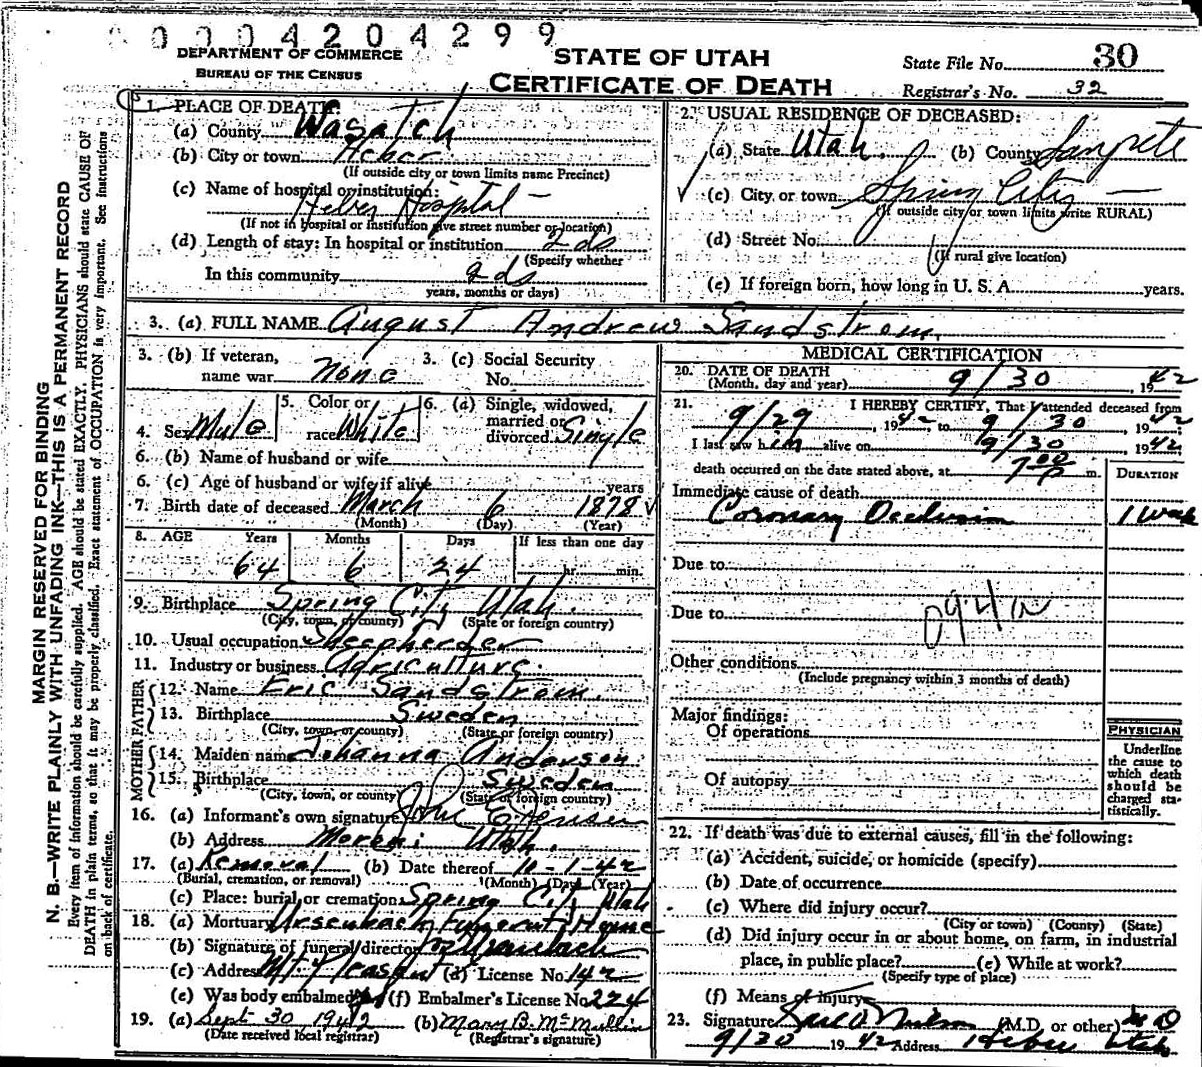 0 0 0 4 2 0 4 2 9 9
DEPARTMENT OF COMMERCE
BUREAU OF THE CENSUS
STATE OF UTAH
CERTIFICATE OF DEATH
State File No. 30
Registrar's No. 32
MARGIN RESERVED FOR BINDING
N. B.—WRITE PLAINLY WITH UNFADING INK—THIS IS A PERMANENT RECORD
Every item of information should be carefully supplied. AGE should be stated EXACTLY. PHYSICIANS should state CAUSE OF
DEATH in plain terms, so that it may be properly classified. Exact statement of OCCUPATION is very important. See instructions
on back of certificate.
1. PLACE OF DEATH:
(a) County Wasatch
(b) City or town Heber
(If outside city or town limits name Precinct)
(c) Name of hospital or institution:
Heber Hospital
(If not in hospital or institution give street number or location)
(d) Length of stay: In hospital or institution 2 ds
(Specify whether
In this community 2 ds
years, months or days)
2. USUAL RESIDENCE OF DECEASED:
(a) State Utah (b) County Sanpete
(c) City or town Spring City
(If outside city or town limits write RURAL)
(d) Street No.
(If rural give location)
(e) If foreign born, how long in U. S. A. years.
3. (a) FULL NAME August Andrew Sandstrom
3. (b) If veteran, name war None
3. (c) Social Security No.
4. Sex Male 5. Color or race White 6. (a) Single, widowed, married or divorced Single
6. (b) Name of husband or wife
6. (c) Age of husband or wife if alive years
7. Birth date of deceased March 6 1878
(Month) (Day) (Year)
8. AGE Years Months Days If less than one day
64 6 24 hr. min.
9. Birthplace Spring City Utah.
(City, town, or county) (State or foreign country)
10. Usual occupation Sheepherder
11. Industry or business Agriculture.
FATHER
12. Name Eric Sandstrom
13. Birthplace Sweden
(City, town, or county) (State or foreign country)
MOTHER
14. Maiden name Johanna Anderson
15. Birthplace Sweden
(City, town, or county) (State or foreign country)
16. (a) Informant's own signature
(b) Address Moroni Utah.
17. (a) Removal (b) Date thereof -1-42
(Burial, cremation, or removal) (Month) (Day) (Year)
(c) Place: burial or cremation Spring City Utah
18. (a) Mortuary Ursenbach Funeral Home
(b) Signature of funeral director Ursenbach
(c) Address Mt. Pleasant (d) License No. 142
(e) Was body embalmed (f) Embalmer's License No. 224
19. (a) Sept 30 1942 (b) Mary B. McMullin
(Date received local registrar) (Registrar's signature)
MEDICAL CERTIFICATION
20. DATE OF DEATH
(Month, day and year) 9/30, 1942
21. I HEREBY CERTIFY, That I attended deceased from
9/29, 1942 to 9/30, 1942
I last saw him alive on 9/30, 1942
death occurred on the date stated above, at 7:00 p m.
DURATION
Immediate cause of death
Coronary Occlusion 1 week
Due to
Due to
094
Other conditions
(Include pregnancy within 3 months of death)
Major findings:
Of operations
Of autopsy
PHYSICIAN
Underline
the cause to
which death
should be
charged sta-
tistically.
22. If death was due to external causes, fill in the following:
(a) Accident, suicide, or homicide (specify)
(b) Date of occurrence
(c) Where did injury occur?
(City or town) (County) (State)
(d) Did injury occur in or about home, on farm, in industrial
place, in public place? (e) While at work?
(Specify type of place)
(f) Means of Injury
23. Signature (M.D. or other) M D
9/30 1942 Address Heber Utah